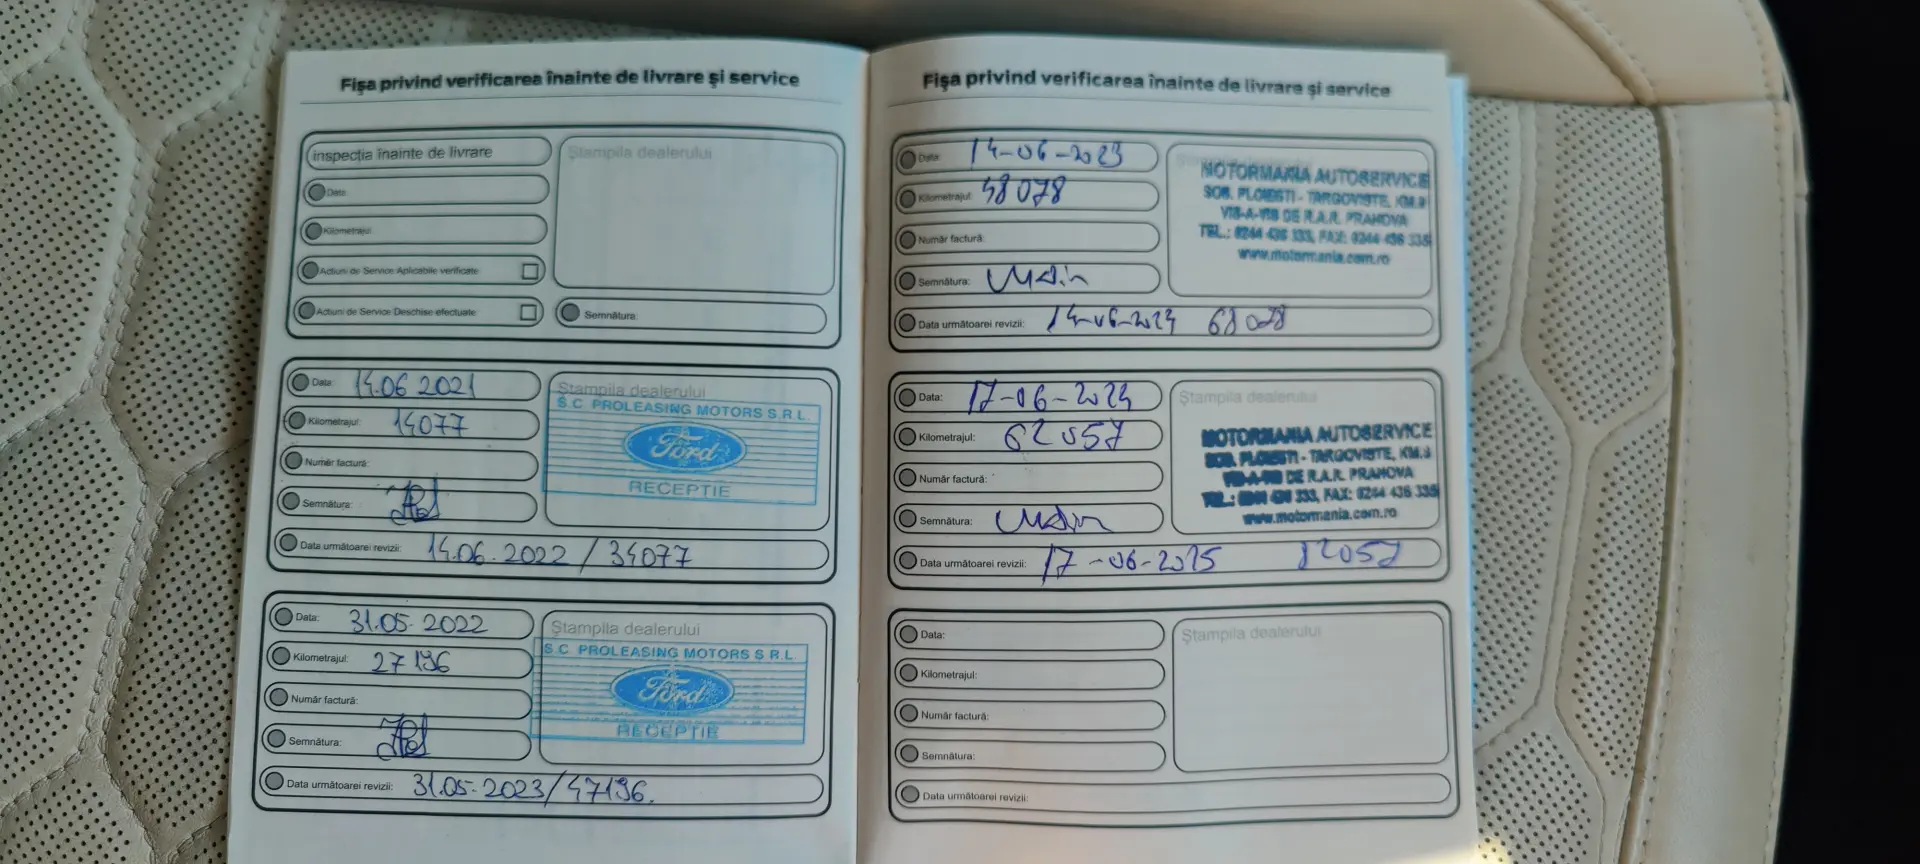 Fișa privind verificarea înainte de livrare și service
inspecția înainte de livrare
Ștampila dealerului
Data:
Kilometrajul:
Acțiuni de Service Aplicabile verificate
Acțiuni de Service Deschise efectuate:
Semnătura:
Data: 14.06 2021
Kilometrajul: 14077
Număr factură:
Semnătura:
Data următoarei revizii: 14.06.2022 / 34077
Ștampila dealerului
S.C PROLEASING MOTORS S.R.L.
Ford
RECEPTIE
Data: 31.05.2022
Kilometrajul: 27196
Număr factură:
Semnătura:
Data următoarei revizii: 31.05.2023/47196.
Ștampila dealerului
S.C PROLEASING MOTORS S R.L
Ford
RECEPTIE
Fișa privind verificarea înainte de livrare și service
Data: 14-06-2023
Kilometrajul: 48078
Număr factură:
Semnătura:
Data următoarei revizii: 14-06-2024 68078
MOTORMANIA AUTOSERVICE
SOS. PLOIESTI - TARGOVISTE, KM.9
VIS-A-VIS DE R.A.R. PRAHOVA
TEL.: 0244 436 333, FAX: 0244 436 335
www.motormania.com.ro
Data: 17-06-2024
Kilometrajul: 62057
Număr factură:
Semnătura:
Data următoarei revizii: 17-06-2025 82057
Ștampila dealerului
MOTORMANIA AUTOSERVICE
SOS. PLOIESTI - TARGOVISTE, KM.9
VIS-A-VIS DE R.A.R. PRAHOVA
TEL.: 0244 436 333, FAX: 0244 436 335
www.motormania.com.ro
Data:
Kilometrajul:
Număr factură:
Semnătura:
Data următoarei revizii:
Ștampila dealerului